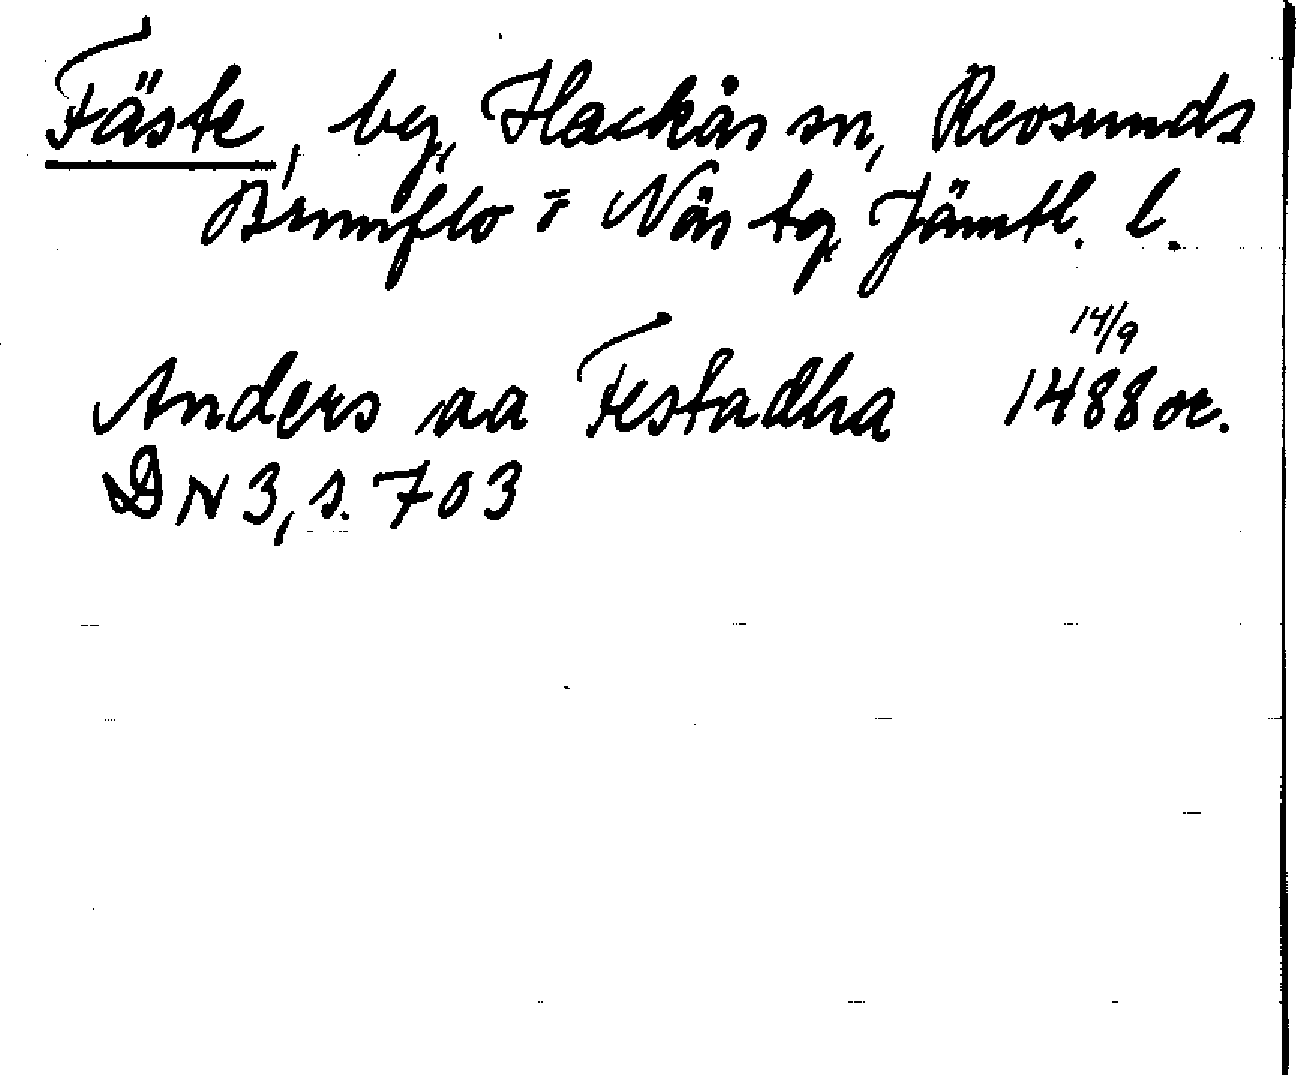 Fäste, by, Hackås sn, Revsunds
Brunflo o Näs tg Jämtl. l.
14/9
Anders aa Festadha 1488 or.
DN 3, s. 703